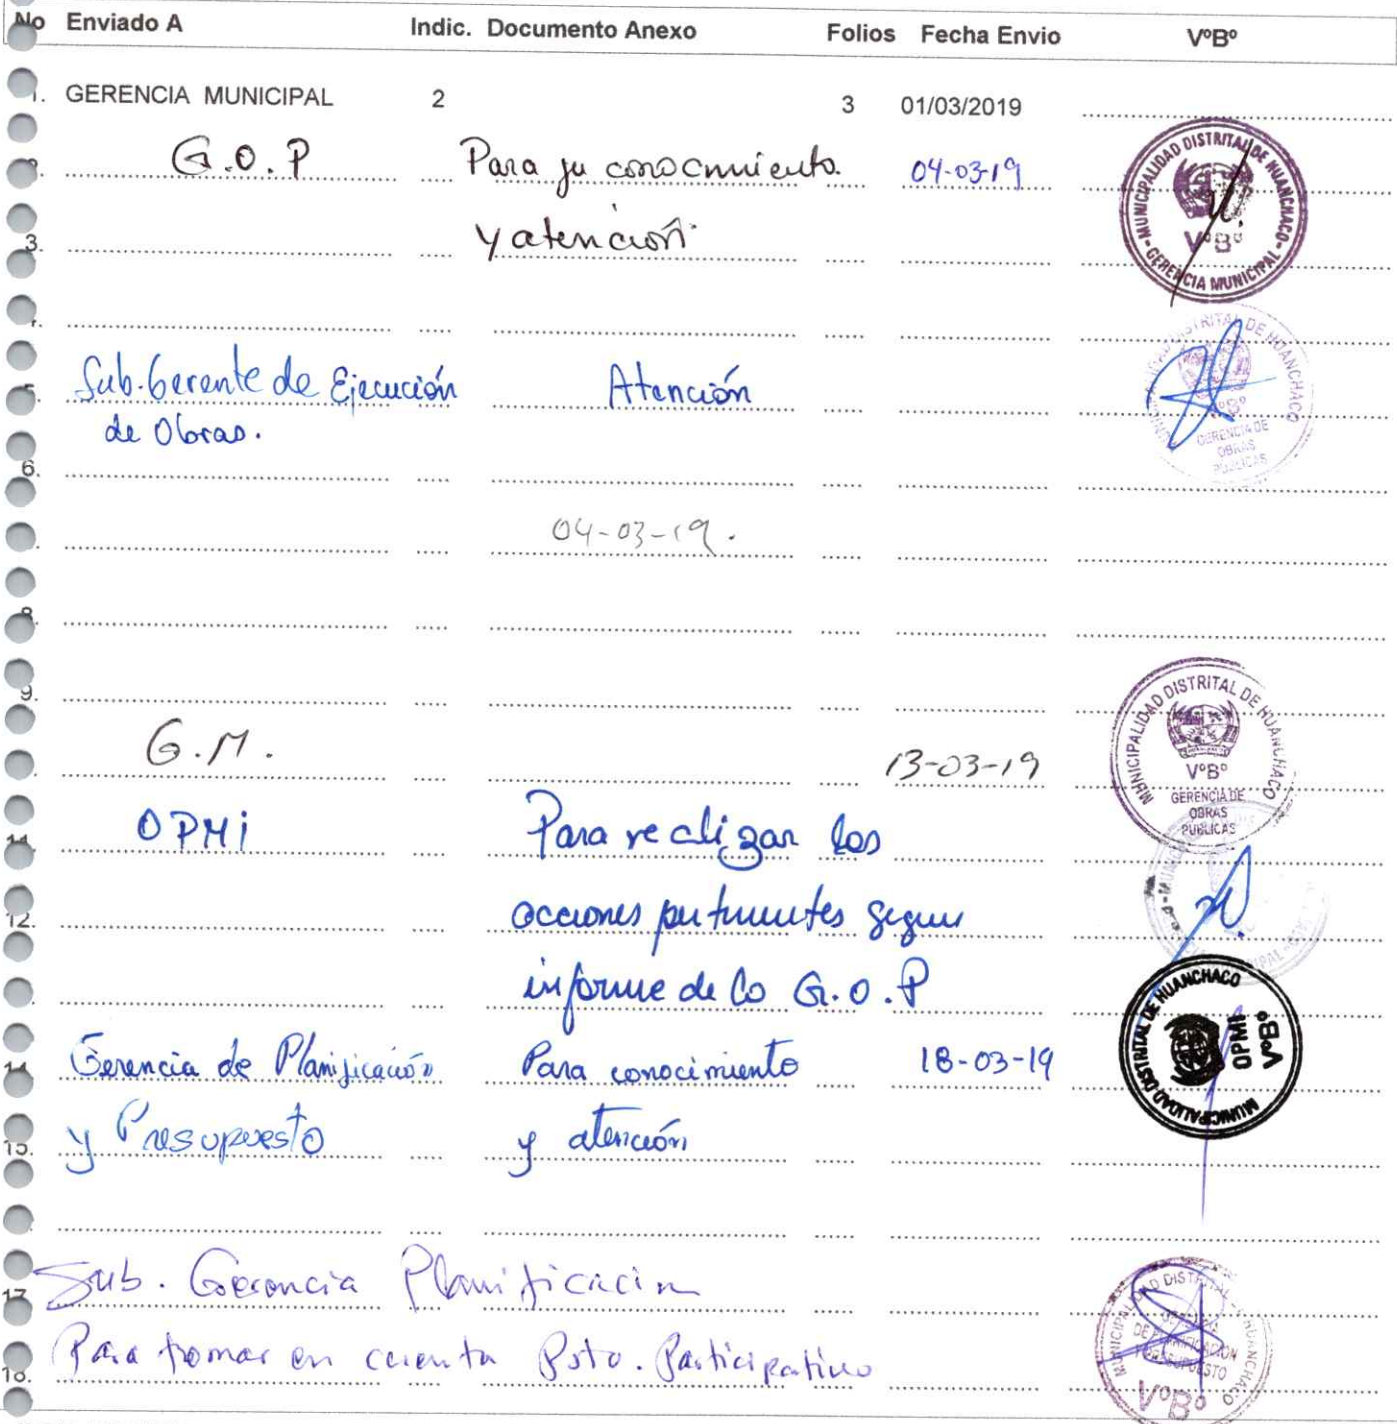 No Enviado A Indic. Documento Anexo Folios Fecha Envio VºBº
1. GERENCIA MUNICIPAL 2 3 01/03/2019
G.O.P Para su conocmiento 04-03-19
MUNICIPALIDAD DISTRITAL DE HUANCHACO - GERENCIA MUNICIPAL - VºBº
3. y atención
Sub.Gerente de Ejecución Atención
5.
de Obras.
DISTRITAL DE HUANCHACO GERENCIA DE OBRAS PUBLICAS
6.
04-03-19.
8.
9.
G.M. 13-03-19
MUNICIPALIDAD DISTRITAL DE HUANCHACO VºBº GERENCIA DE OBRAS PUBLICAS
11. OPMI Para realizar las
12. acciones pertinentes segun
informe de la G.O.P
MUNICIPALIDAD DISTRITAL DE HUANCHACO OPMI VºBº
14. Gerencia de Planificación Para conocimiento 18-03-19
15. y Presupuesto y atención
17. Sub. Gerencia Planificacin
18. Para tomar en cuenta Psto. Participativo
MUNICIPALIDAD DISTRITAL HUANCHACO VºBº